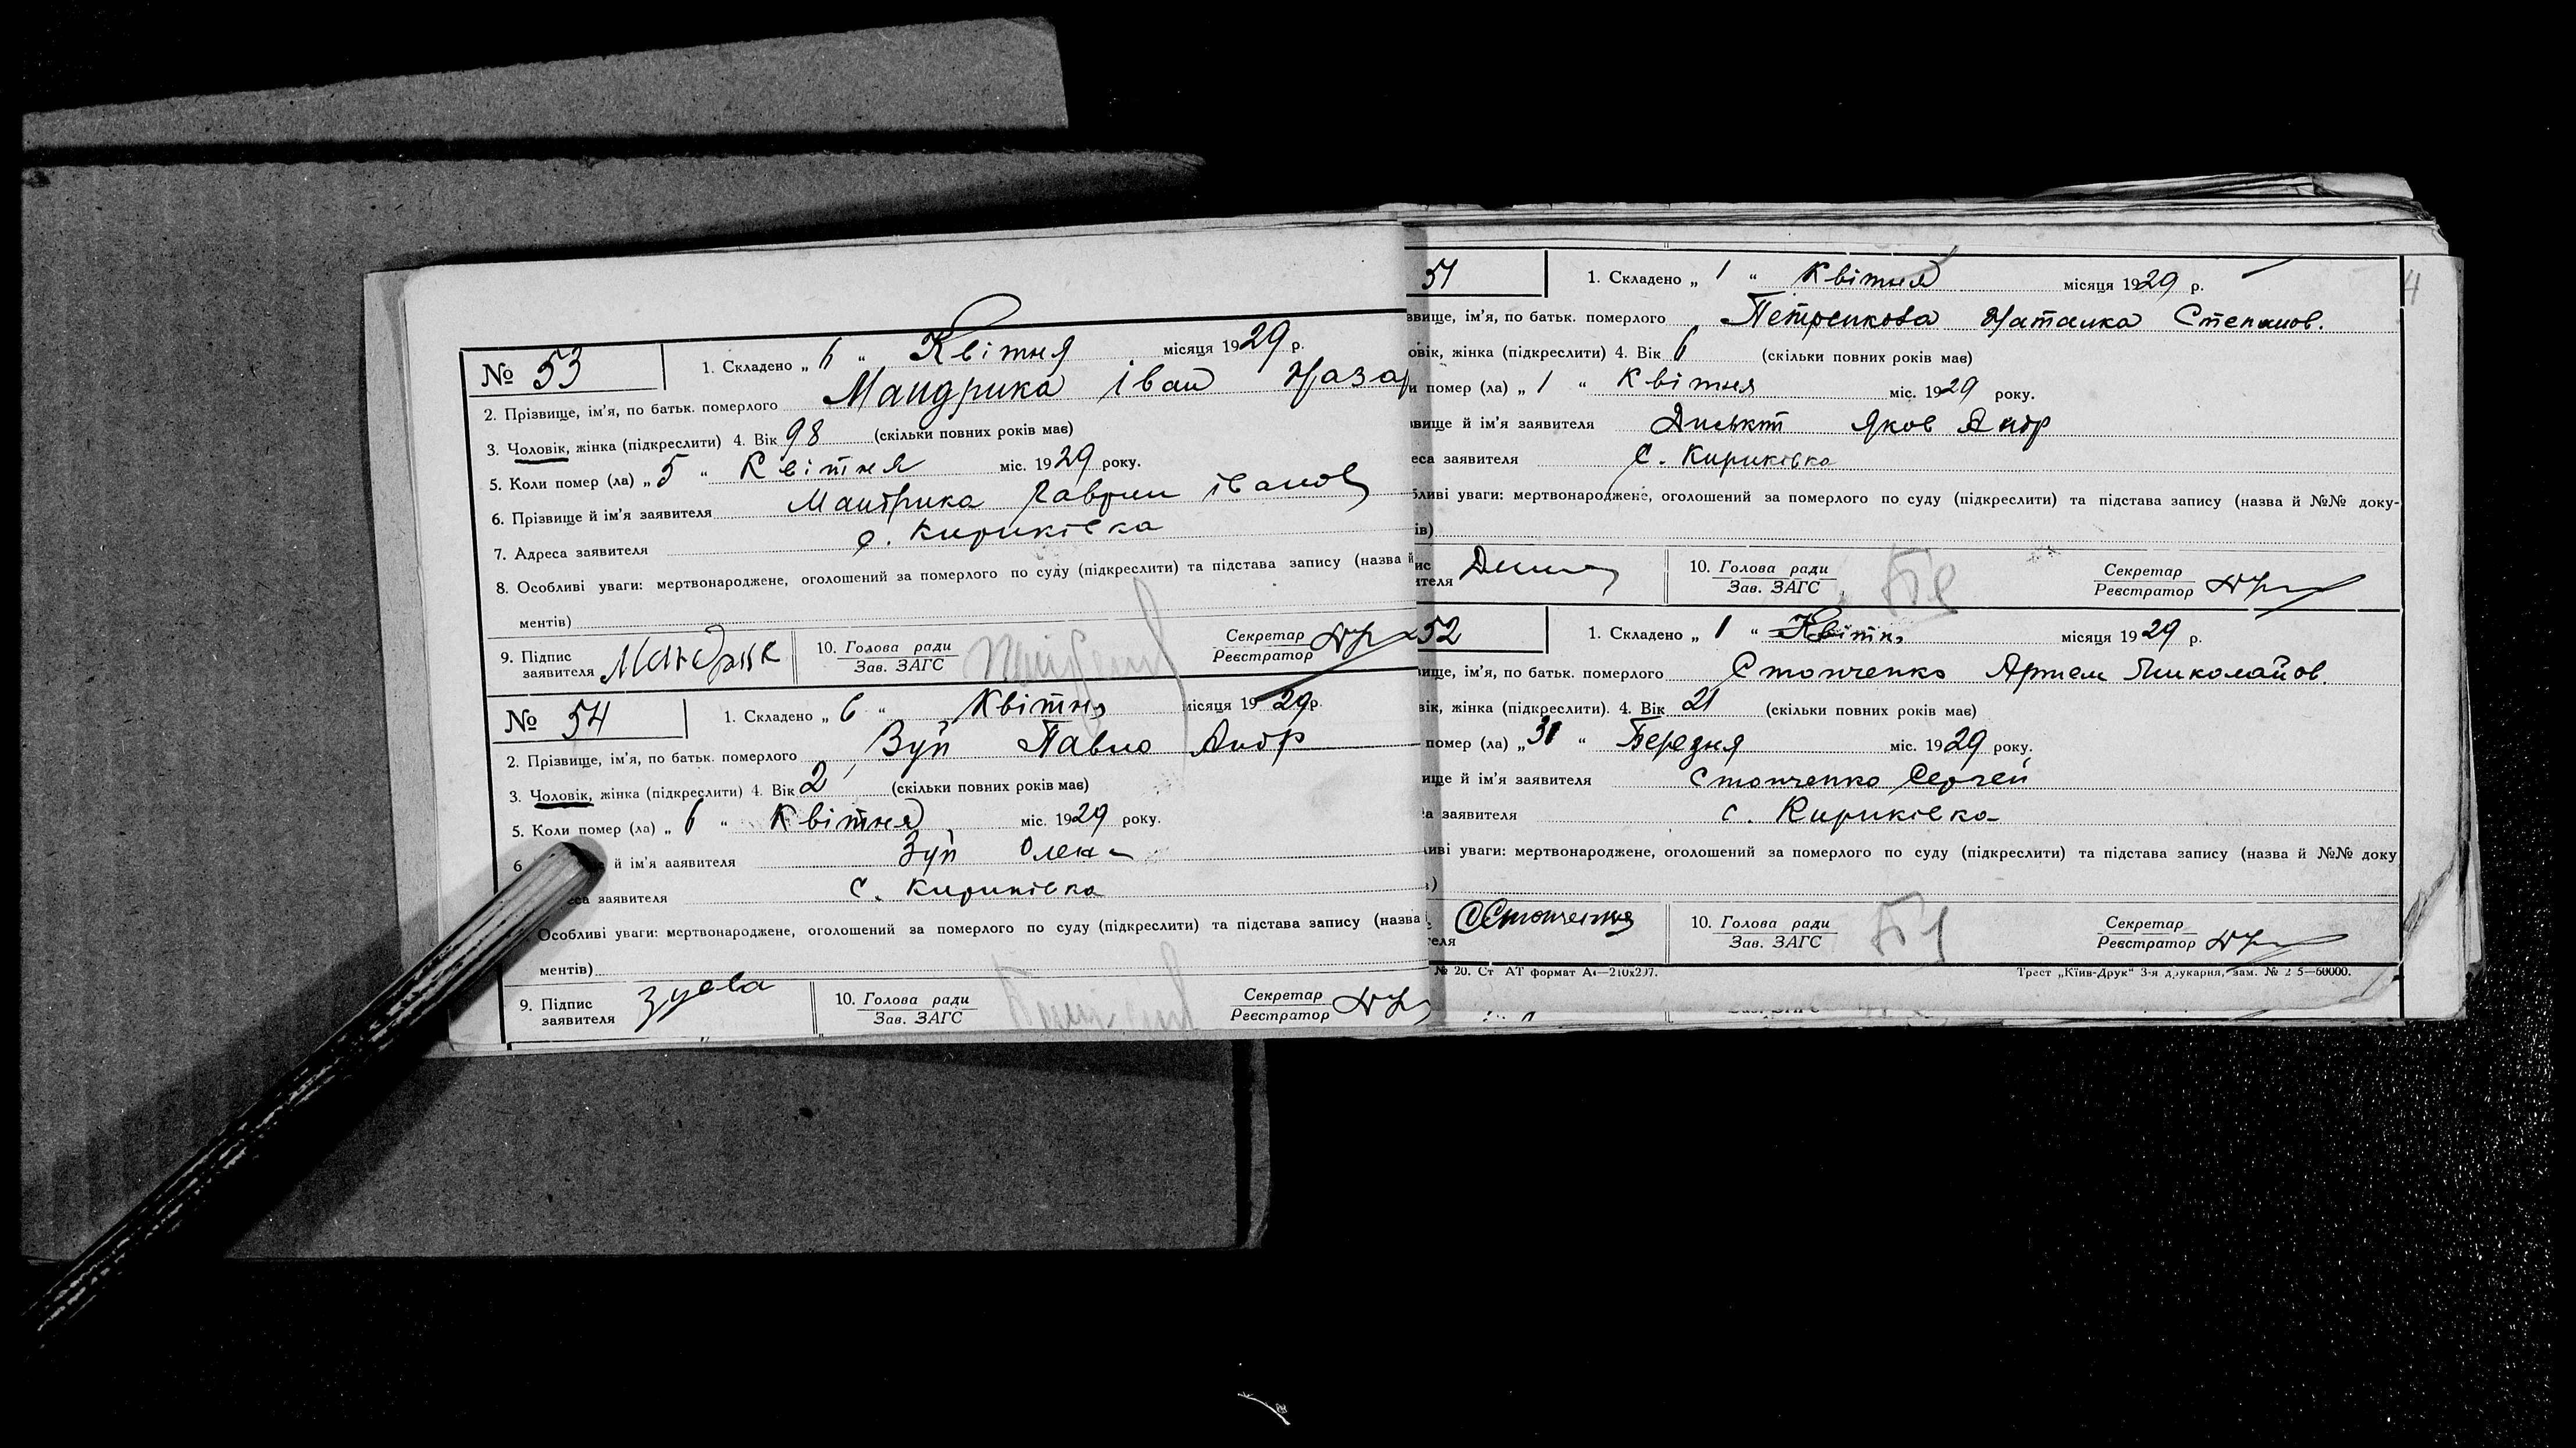 № 53
1. Складено „ 6 “ Квітня місяця 1929 р.
2. Прізвище, ім'я, по батьк. померлого Мандрика Іван Наза
3. Чоловік, жінка (підкреслити) 4. Вік 98 (скільки повних років має)
5. Коли помер (ла) „ 5 “ Квітня міс. 1929 року.
6. Прізвище й ім'я заявителя Мандрика Гаврил Іванов
7. Адреса заявителя с. Кириківка
8. Особливі уваги: мертвонароджене, оголошений за померлого по суду (підкреслити) та підстава запису (назва й
ментів)
9. Підпис заявителя Мандрик
10. Голова ради
Зав. ЗАГС
Секретар
Реєстратор
№ 54
1. Складено „ 6 “ Квітня місяця 1929 р.
2. Прізвище, ім'я, по батьк. померлого Зуй Павло Андр
3. Чоловік, жінка (підкреслити) 4. Вік 2 (скільки повних років має)
5. Коли помер (ла) „ 6 “ Квітня міс. 1929 року.
6 й ім'я заявителя Зуй Олек
еса заявителя с. Кириківка
Особливі уваги: мертвонароджене, оголошений за померлого по суду (підкреслити) та підстава запису (назва
ментів)
9. Підпис заявителя Зуева
10. Голова ради
Зав. ЗАГС
Секретар
Реєстратор
4
51
1. Складено „ 1 “ Квітня місяця 1929 р.
звище, ім'я, по батьк. померлого Петренкова Наталка Степанов.
овік, жінка (підкреслити) 4. Вік 6 (скільки повних років має)
и помер (ла) „ 1 “ Квітня міс. 1929 року.
вище й ім'я заявителя Яков Андр
еса заявителя С. Кириківка
бливі уваги: мертвонароджене, оголошений за померлого по суду (підкреслити) та підстава запису (назва й №№ доку-
ів)
ис
ителя
10. Голова ради
Зав. ЗАГС
Секретар
Реєстратор
52
1. Складено „ 1 “ Квітня місяця 1929 р.
вище, ім'я, по батьк. померлого Стопченко Артем Миколайов.
вік, жінка (підкреслити). 4. Вік 21 (скільки повних років має)
помер (ла) „ 31 “ Березня міс. 1929 року.
ище й ім'я заявителя Стопченко Сергей
а заявителя с. Кириківка
иві уваги: мертвонароджене, оголошений за померлого по суду (підкреслити) та підстава запису (назва й №№ доку
)
теля
С Стопченко
10. Голова ради
Зав. ЗАГС
Секретар
Реєстратор
№ 20. Ст АТ формат А4—210х297.
Трест „Київ-Друк“ 3-я друкарня, зам. № 2 5—60000.